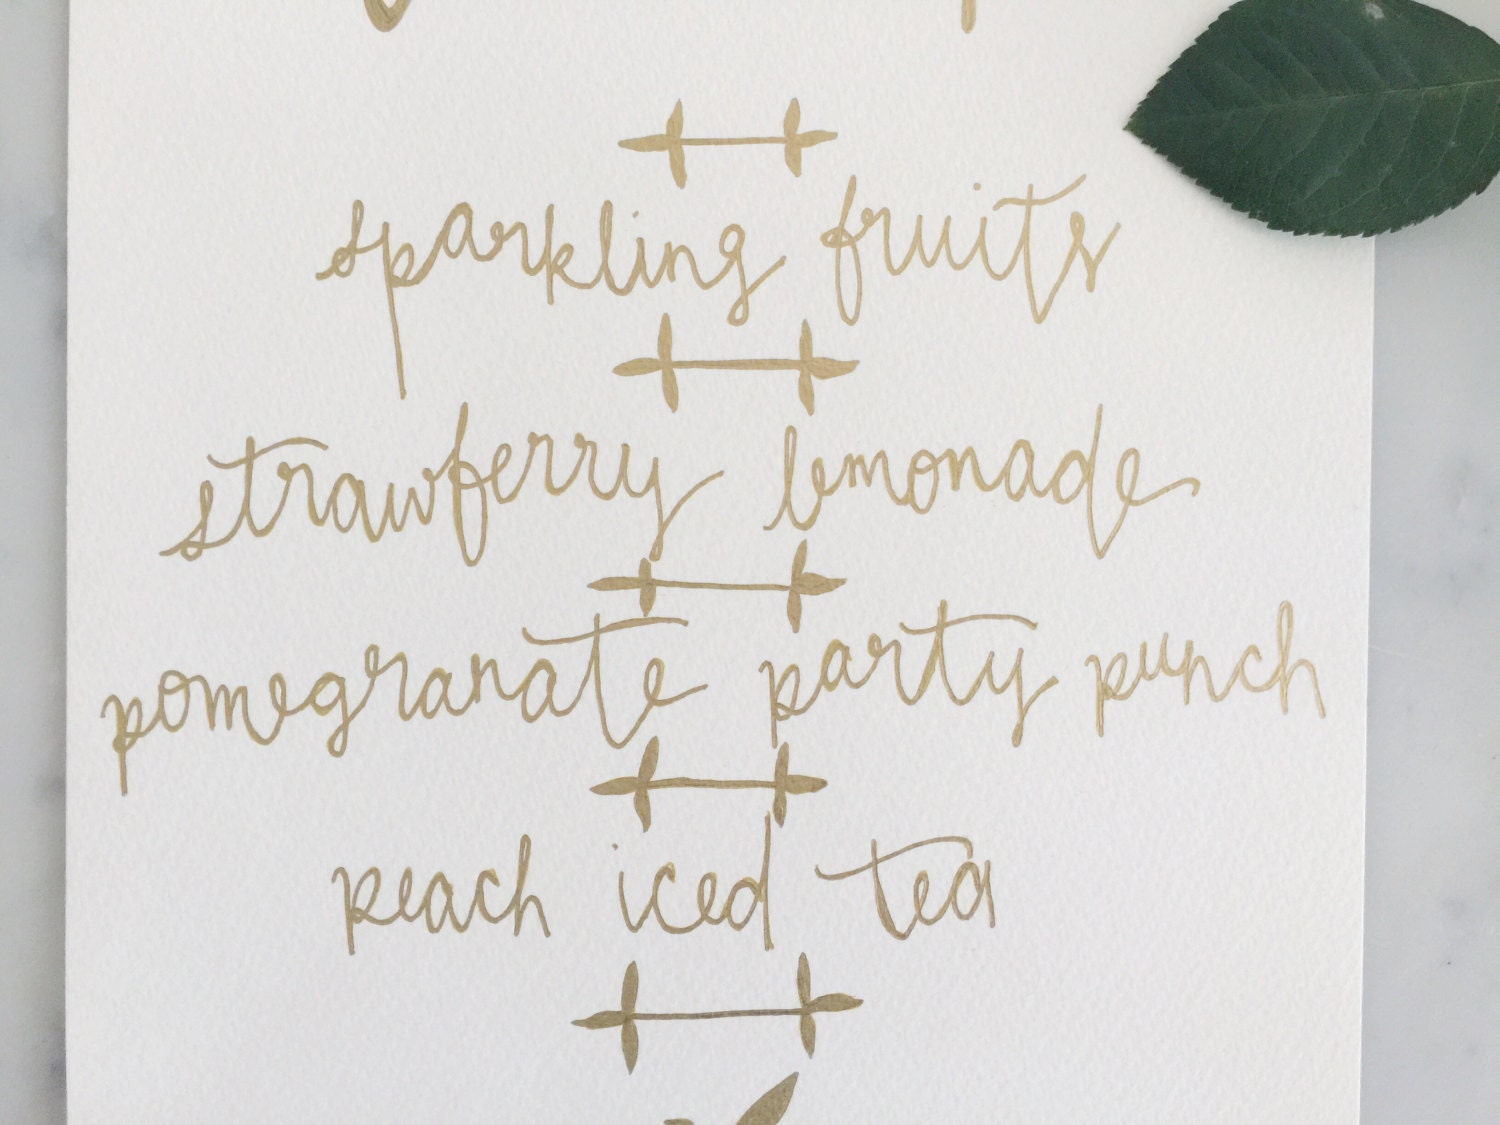 sparkling fruits
strawberry lemonade
pomegranate party punch
peach iced tea